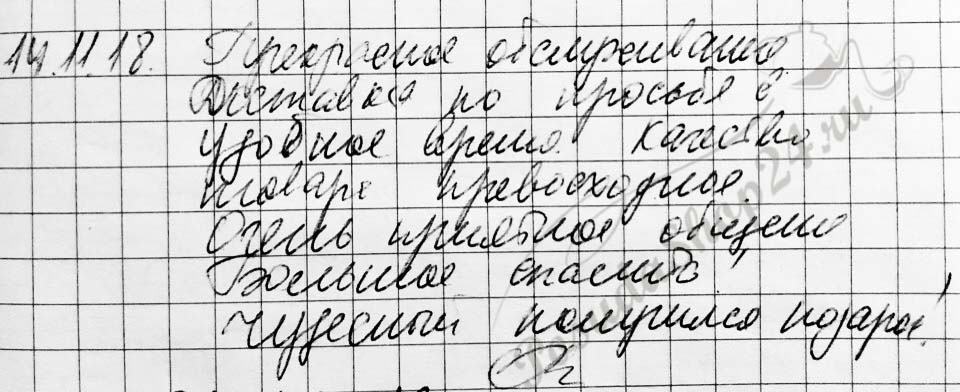 14.11.18. Прекрасное обслуживание
Доставка по просьбе в
удобное время. Качество
товара превосходное
Очень приятное общение
Большое спасибо!
Чудесный получился подарок!